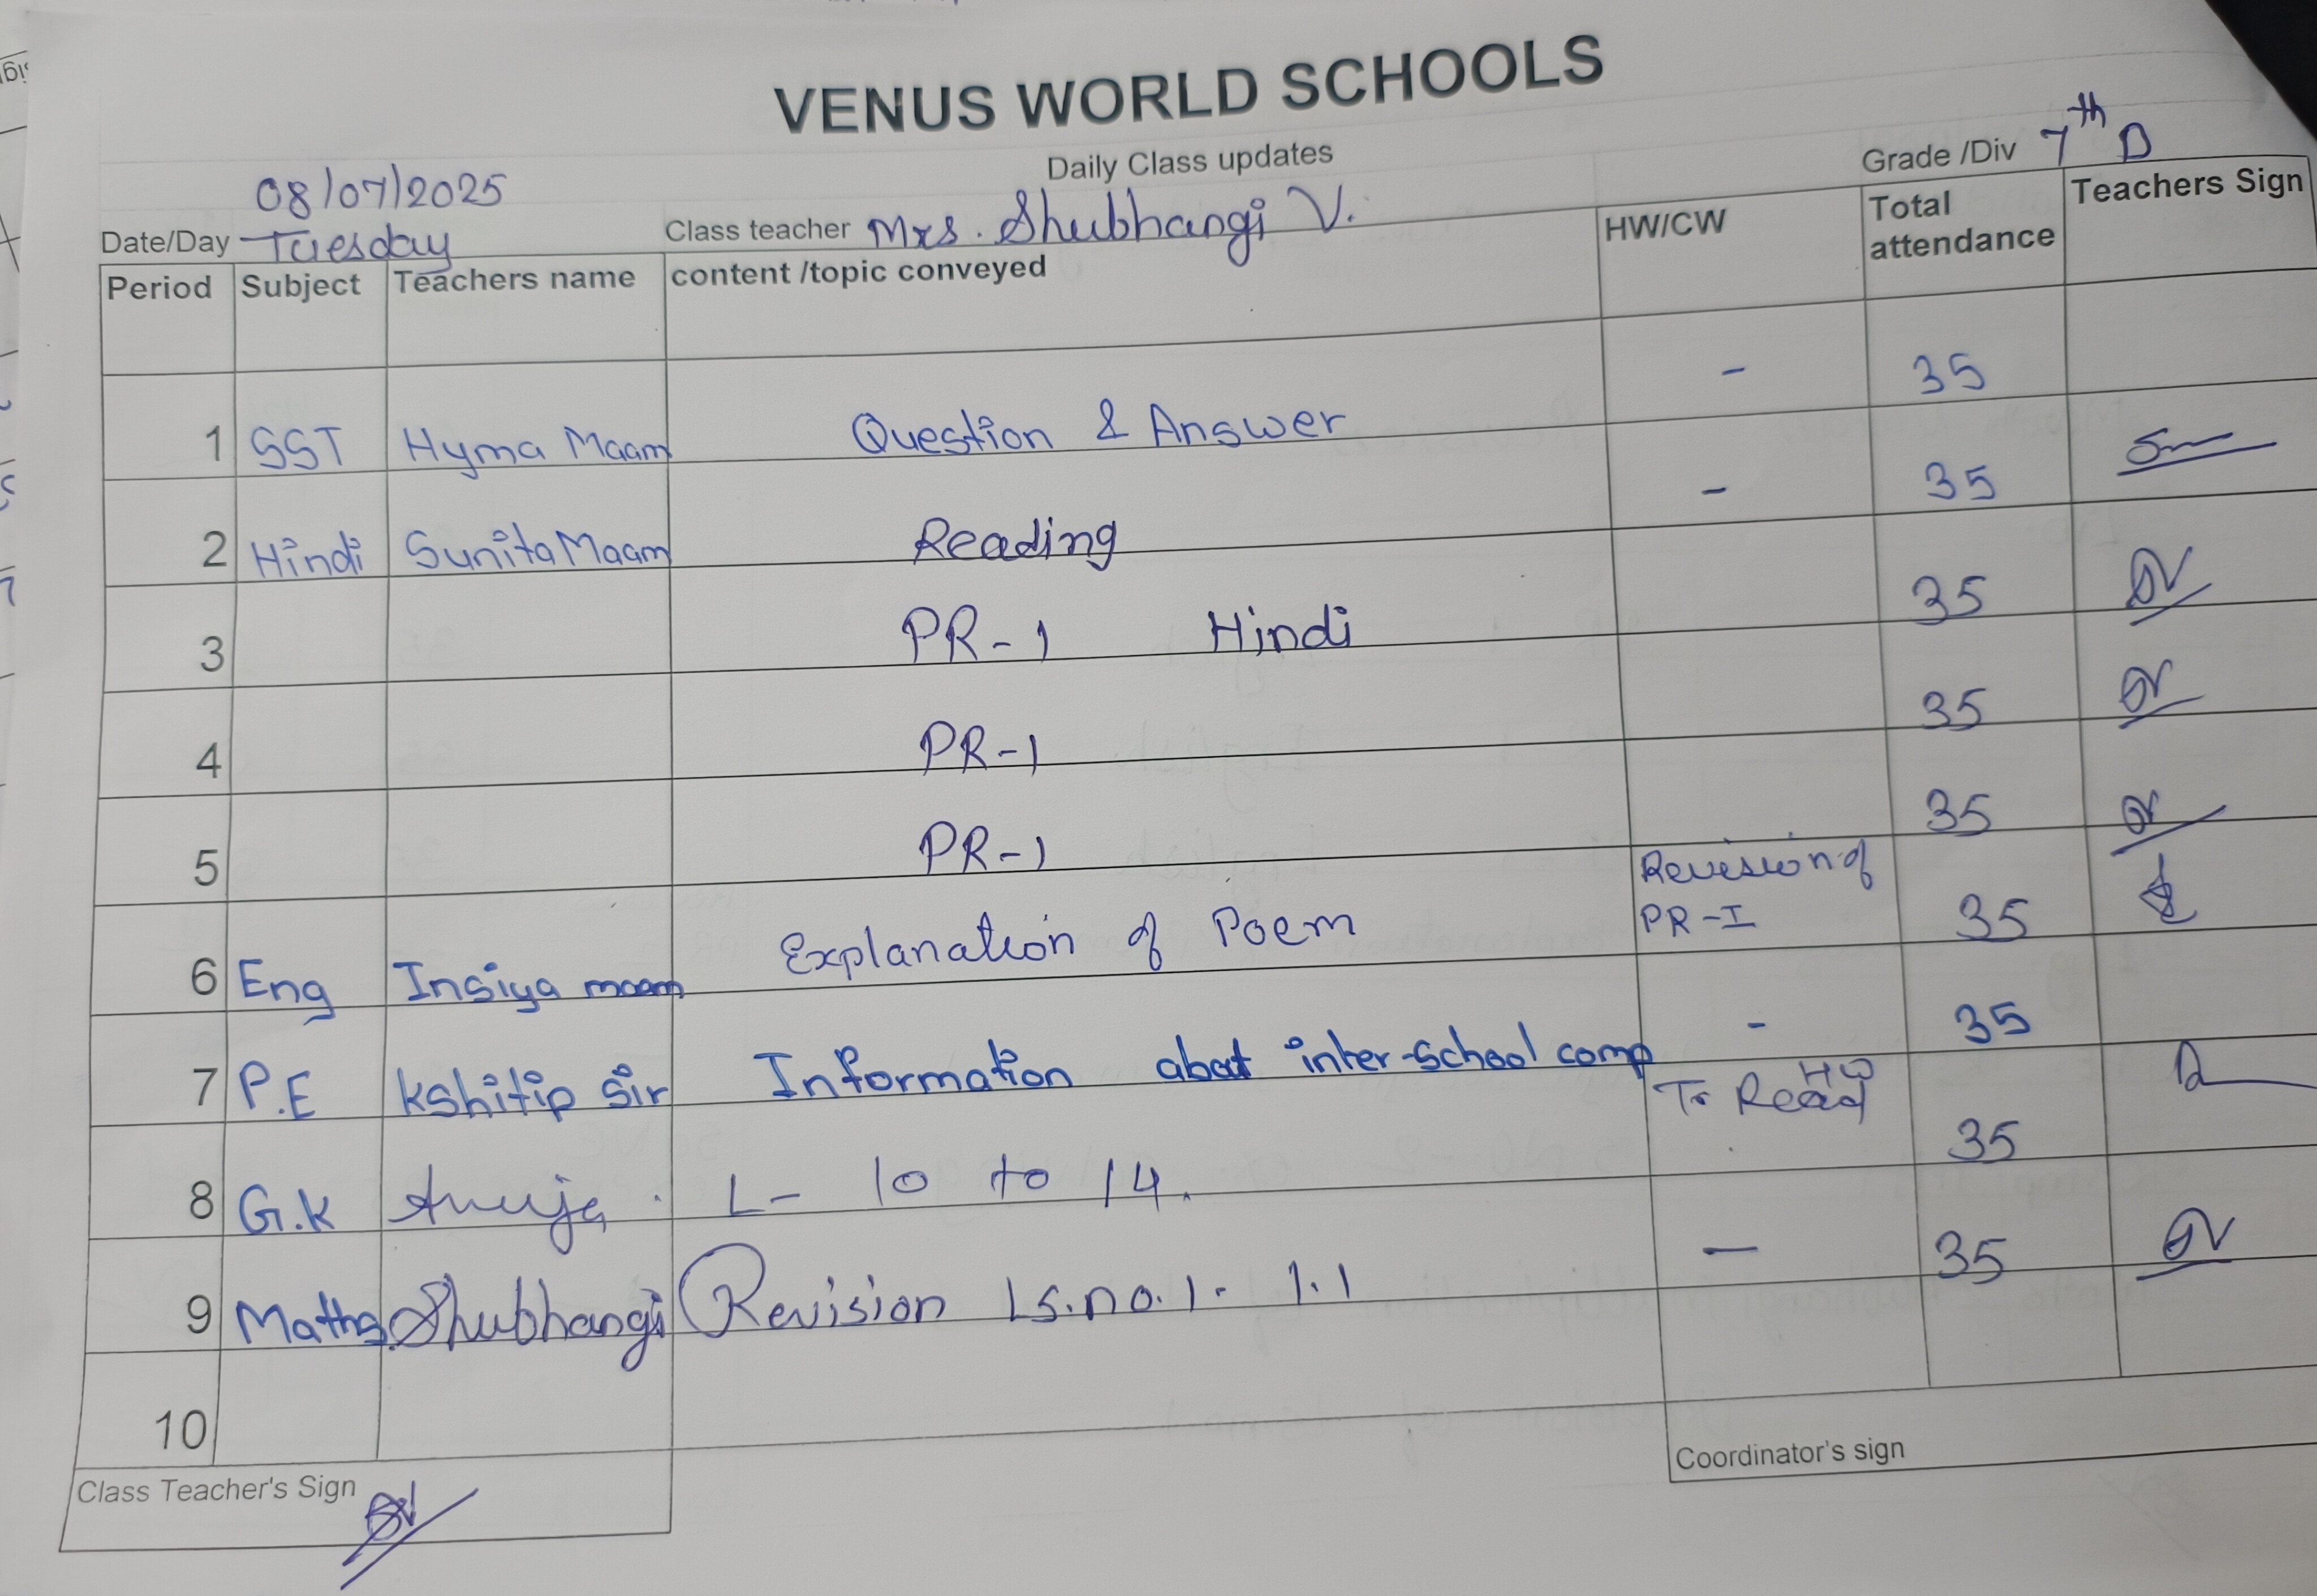 VENUS WORLD SCHOOLS
Daily Class updates
Grade /Div 7th D
08/07/2025
Date/Day Tuesday Class teacher Mrs. Shubhangi V.
Period Subject Teachers name content /topic conveyed HW/CW Total attendance Teachers Sign
1 SST Hyma Maam Question & Answer - 35
2 Hindi Sunita Maam Reading - 35
3 PR-1 Hindi 35
4 PR-1 35
5 PR-1 35
6 Eng Insiya maam Explanation of Poem Revision of PR-I 35
7 P.E kshitip sir Information about inter-school comp - 35
8 G.k Anuja L- 10 to 14. HW To Read 35
9 Maths Shubhangi Revision Ls.no.1. 1.1 — 35
10
Class Teacher's Sign
Coordinator's sign